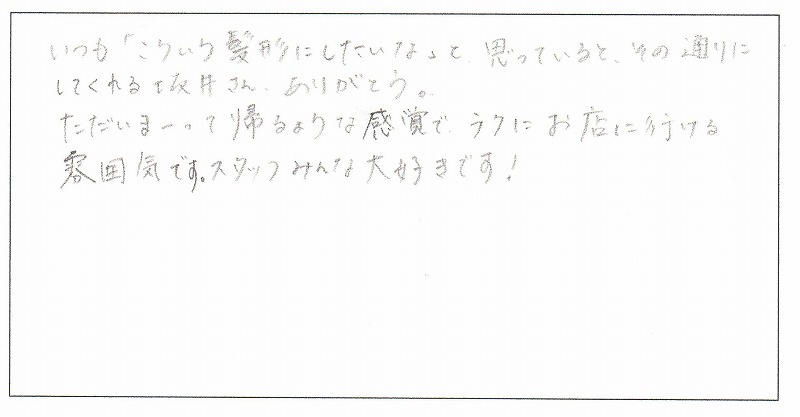 いつも「こういう髪形にしたいな」と、思っていると、その通りに
してくれる坂井さん、ありがとう。
ただいまーって帰るような感覚で、ラクにお店に行ける
雰囲気です。スタッフみんな大好きです!